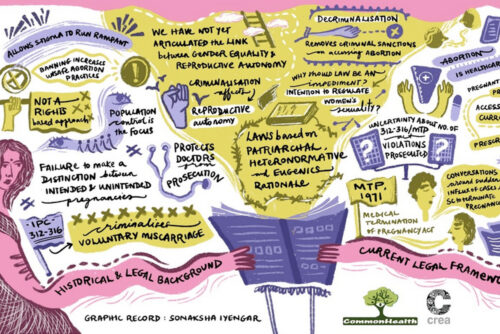 ALLOWS STIGMA TO RUN RAMPANT
BANNING INCREASES
UNSAFE ABORTION
PRACTICES
NOT A
RIGHTS
based approach
POPULATION
control is
the FOCUS
FAILURE to make a
DISTINCTION between
INTENDED & UNINTENDED
pregnancies
PROTECTS
DOCTORS
from
PROSECUTION
IPC
312-316
criminalises
VOLUNTARY MISCARRIAGE
HISTORICAL & LEGAL BACKGROUND
WE HAVE NOT YET
ARTICULATED THE LINK
between GENDER EQUALITY &
REPRODUCTIVE AUTONOMY
CRIMINALISATION
affects
REPRODUCTIVE
autonomy
LAWS based on
PATRIARCHAL
HETERONORMATIVE
and EUGENICS
RATIONALE
DECRIMINALISATION
REMOVES CRIMINAL SANCTIONS
on accessing
ABORTION
WHY SHOULD LAW BE AN
IMPEDIMENT?
INTENTION to REGULATE
WOMEN'S
sexuality?
ABORTION
IS HEALTHCAR
PREGNA
PE
ACCESS
CURR
PRESCR
UNCERTAINTY ABOUT NO. OF
312-316/MTP
act
VIOLATIONS
PROSECUTED
MTP,
1971
MEDICAL
TERMINATION
OF PREGNANCY ACT
CONVERSATIONS
around sudden
INFLUX OF CASES
SC to TERMINATE
PREGNANC
CURRENT LEGAL FRAMEW
GRAPHIC RECORD : SONAKSHA IYENGAR
CommonHealth
crea